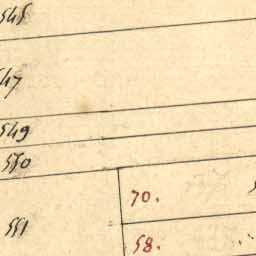 547
549
550
70.
551
58.